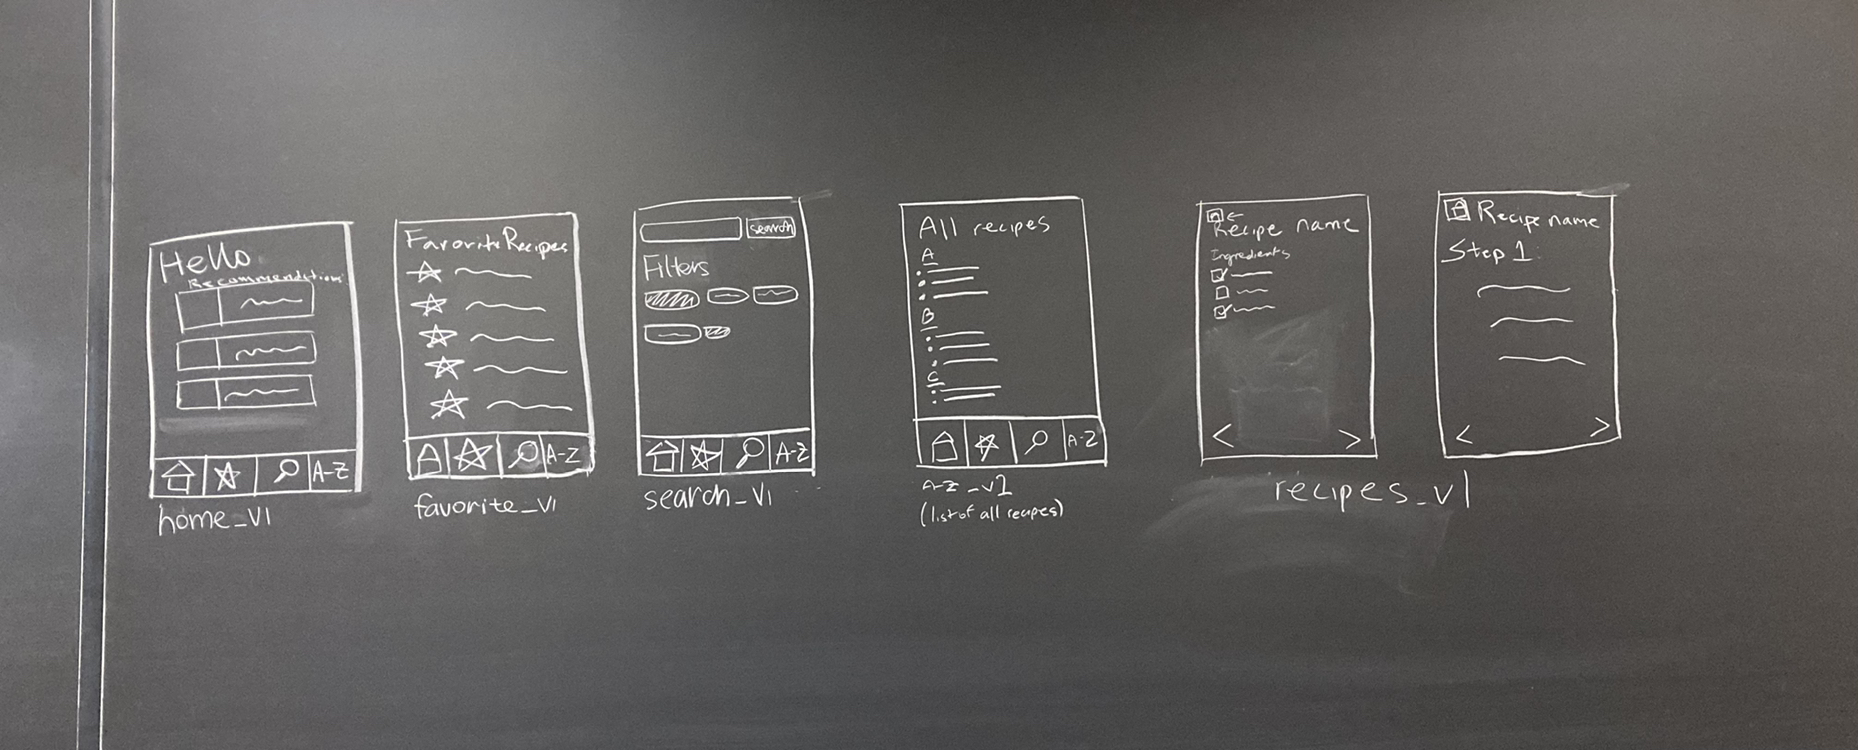 Hello
Recommendations
A-Z
home_v1
Favorite Recipes
A-Z
favorite_v1
search
Filters
A-Z
search_v1
All recipes
A
B
C
A-Z
A-Z_v1
(list of all recipes)
Recipe name
Ingredients
< >
Recipe name
Step 1:
< >
recipes_v1